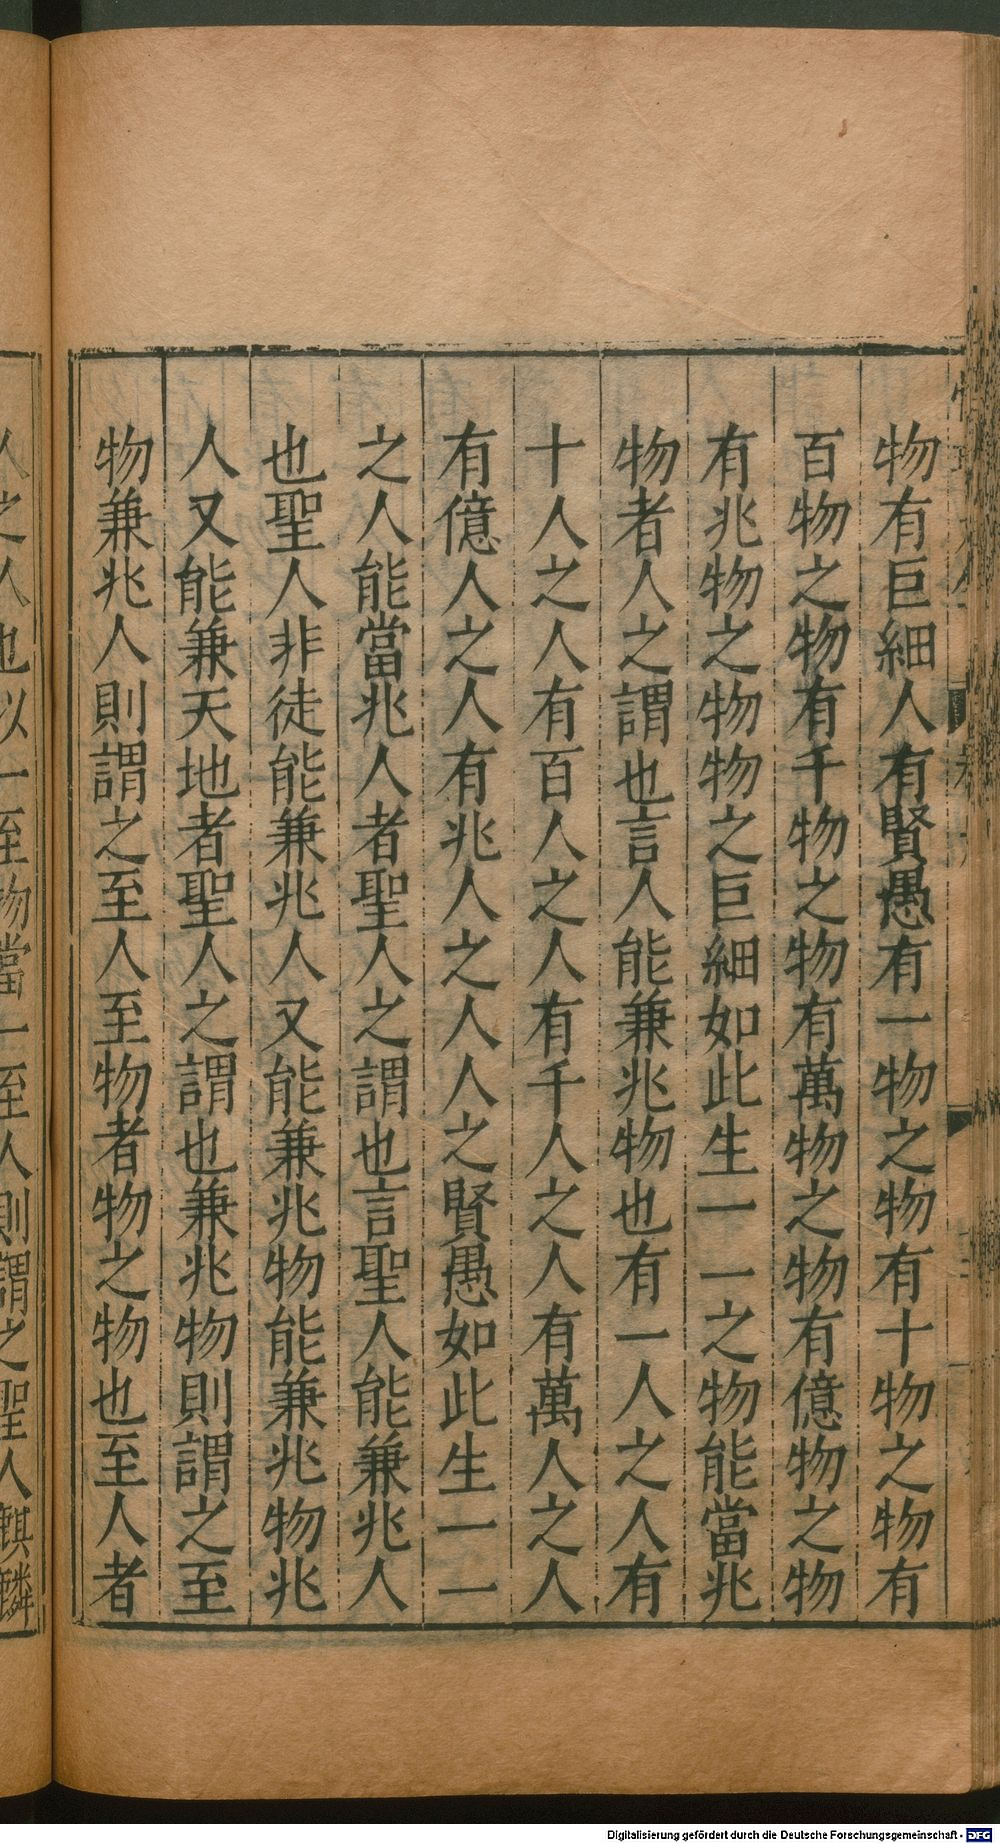 物有巨細人有賢愚有一物之物有十物之物有
百物之物有千物之物有萬物之物有億物之物
有兆物之物物之巨細如此生一一之物能當兆
物者人之謂也言人能兼兆物也有一人之人有
十人之人有百人之人有千人之人有萬人之人
有億人之人有兆人之人人之賢愚如此生一一
之人能當兆人者聖人之謂也言聖人能兼兆人
也聖人非徒能兼兆人又能兼兆物能兼兆物兆
人又能兼天地者聖人之謂也兼兆物則謂之至
物兼兆人則謂之至人至物者物之物也至人者
人之人也以一至物當一至人則謂之聖人麒麟
Digitalisierung gefördert durch die Deutsche Forschungsgemeinschaft - DFG